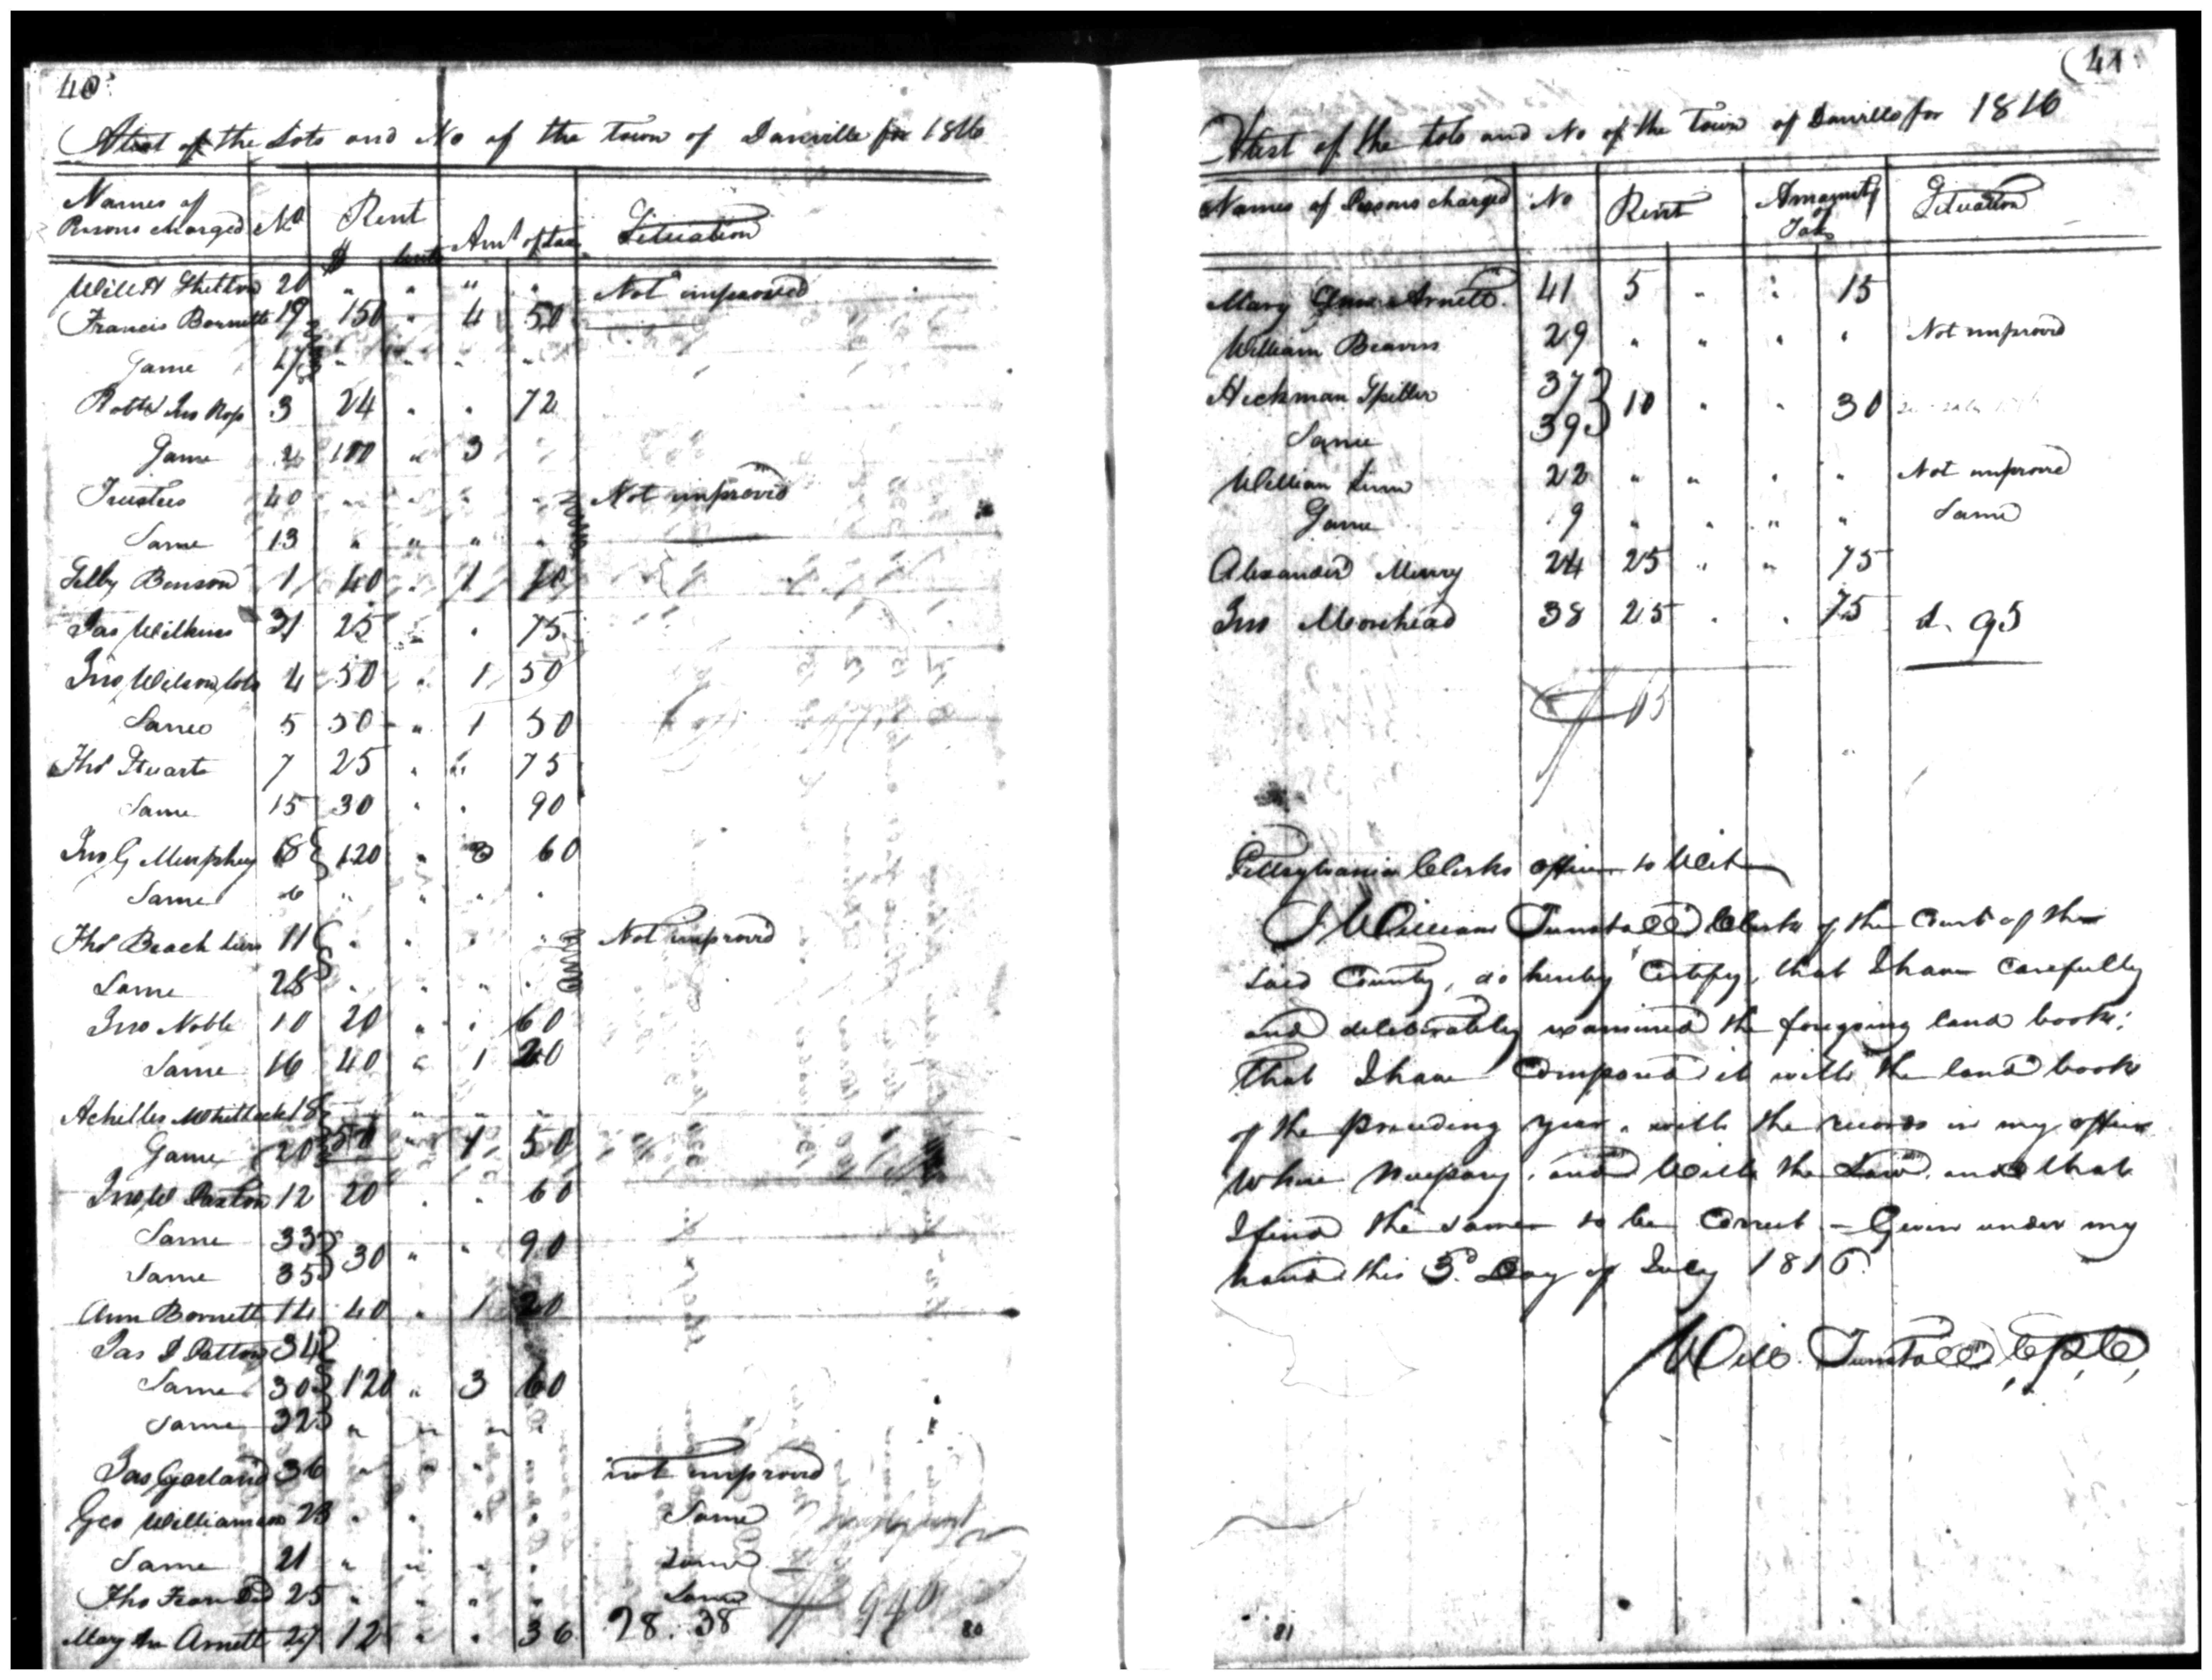 40
A list of the Lots and No of the town of Danville for 1816
Names of Persons charged No Rent $ Cents Amt of tax Situation
Will H Shelton 20 " " " " Not improved
Francis Barnett 19 150 " 4 50
Same 17 " " " "
Ro Jno Ross 3 24 " " 72
Same 2 100 " 3
Trustees 40 " " " " Not improved
Same 13 " " " "
Selby Benson 1 40 " 1 20
Jas Wilkins 31 25 " " 75
Jno Wilson 4 50 " 1 50
Same 5 50 " 1 50
Tho Stuart 7 25 " " 75
Same 15 30 " " 90
Jno G Murphey 8 120 " 3 60
Same 6 " " " "
Tho Beach 11 " " " " Not improved
Same 28 " " " "
Jno Noble 10 20 " " 60
Same 16 40 " 1 20
Achilles Whitlock 18 " " "
Same 20 50 " 1 50
Jno W Paxton 12 20 " " 60
Same 33
Same 35 30 " " 90
Ann Barnett 14 40 " 1 20
Jas D Patton 34
Same 30 120 " 3 60
Same 32 " " " "
Jas Garland 36 " " " " not improved
Geo Williamson 23 " " " " Same
Same 21 " " " " Same
Tho 25 " " " " Same
Mary Ann Arnett 27 12 " " 36 28.38 $940
80
41
A list of the lots and No of the Town of Danville for 1816
Names of Persons charged No Rent Amount of Tax Situation
Mary Ann Arnett 41 5 " " 15
William Beavers 29 " " " " Not improved
Heckman Spiller 37 10 " " 30
Same 39
William Linn 22 " " " " Not improved
Same 9 " " " " Same
Alexander Merry 24 25 " " 75
Jno Morehead 38 25 " " 75 1.95
$65
Pittsylvania Clerks office to Wit
I William Tunstall Clerk of the Court of the
said County, do hereby Certify, that I have carefully
and deliberately examined the foregoing land book;
That I have Compared it with the land book
of the preceeding year, with the records in my office
where necessary, and With the Law, and that
I find the same to be Correct - Given under my
hand this 3d Day of July 1816.
Will Tunstall C,P,C,
81